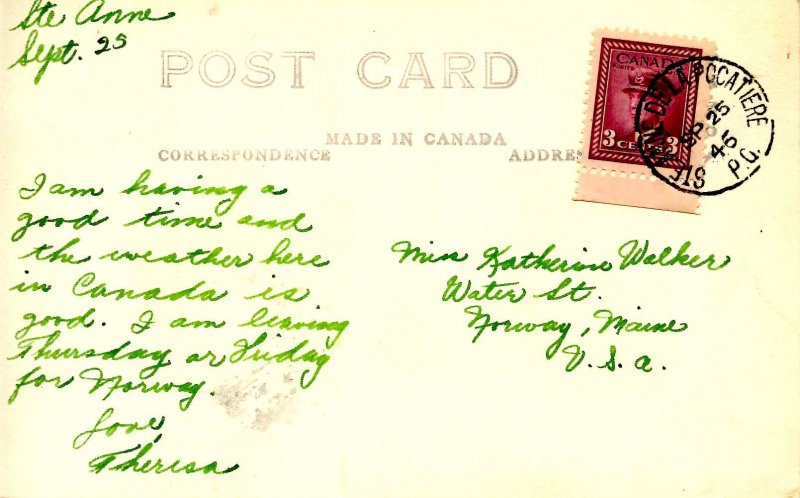 Ste Anne
Sept. 25
POST CARD
MADE IN CANADA
CORRESPONDENCE
ADDRES
CANADA
POSTES
3 CENTS 3
STE ANNE DE LA POCATIERE
SP 25
45
P.Q.
I am having a
good time and
the weather here
in Canada is
good. I am leaving
Thursday or Friday
for Norway.
Love,
Theresa
Miss Katherine Walker
Water St.
Norway, Maine
U.S.A.